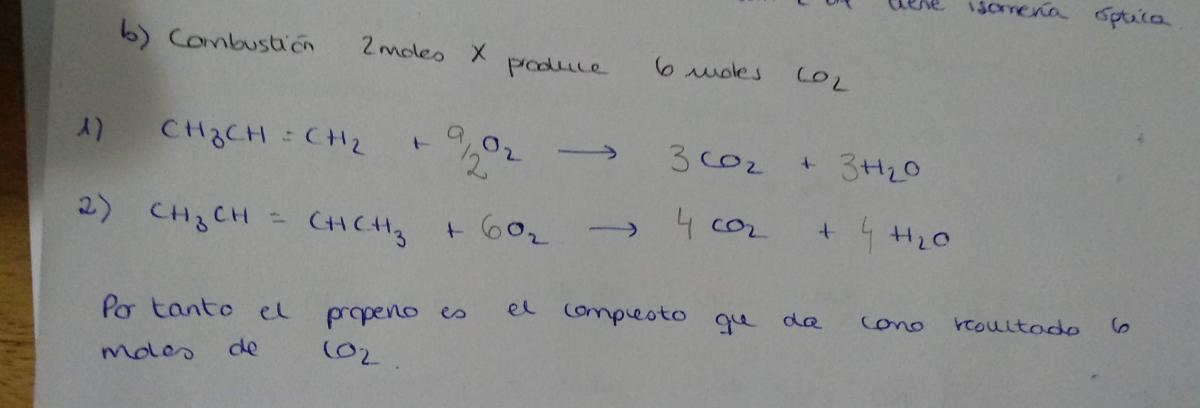 tiene isomería óptica.
b) Combustión 2 moles X produce 6 moles CO2
1) CH3CH = CH2 + 9/2 O2 → 3 CO2 + 3 H2O
2) CH3CH = CHCH3 + 6 O2 → 4 CO2 + 4 H2O
Por tanto el propeno es el compuesto que da como resultado 6
moles de CO2.